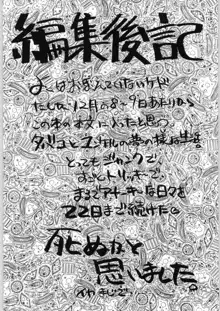 編集後記
よくはおぼえていないケド
たしか、12月の8〜9日あたりから
この本の本文に入ったと思う
とってもジャンクで、
すっとトリッキーで、
まるでアナーキーな日々を
22日まで続けた。
死ぬかと
思いました。